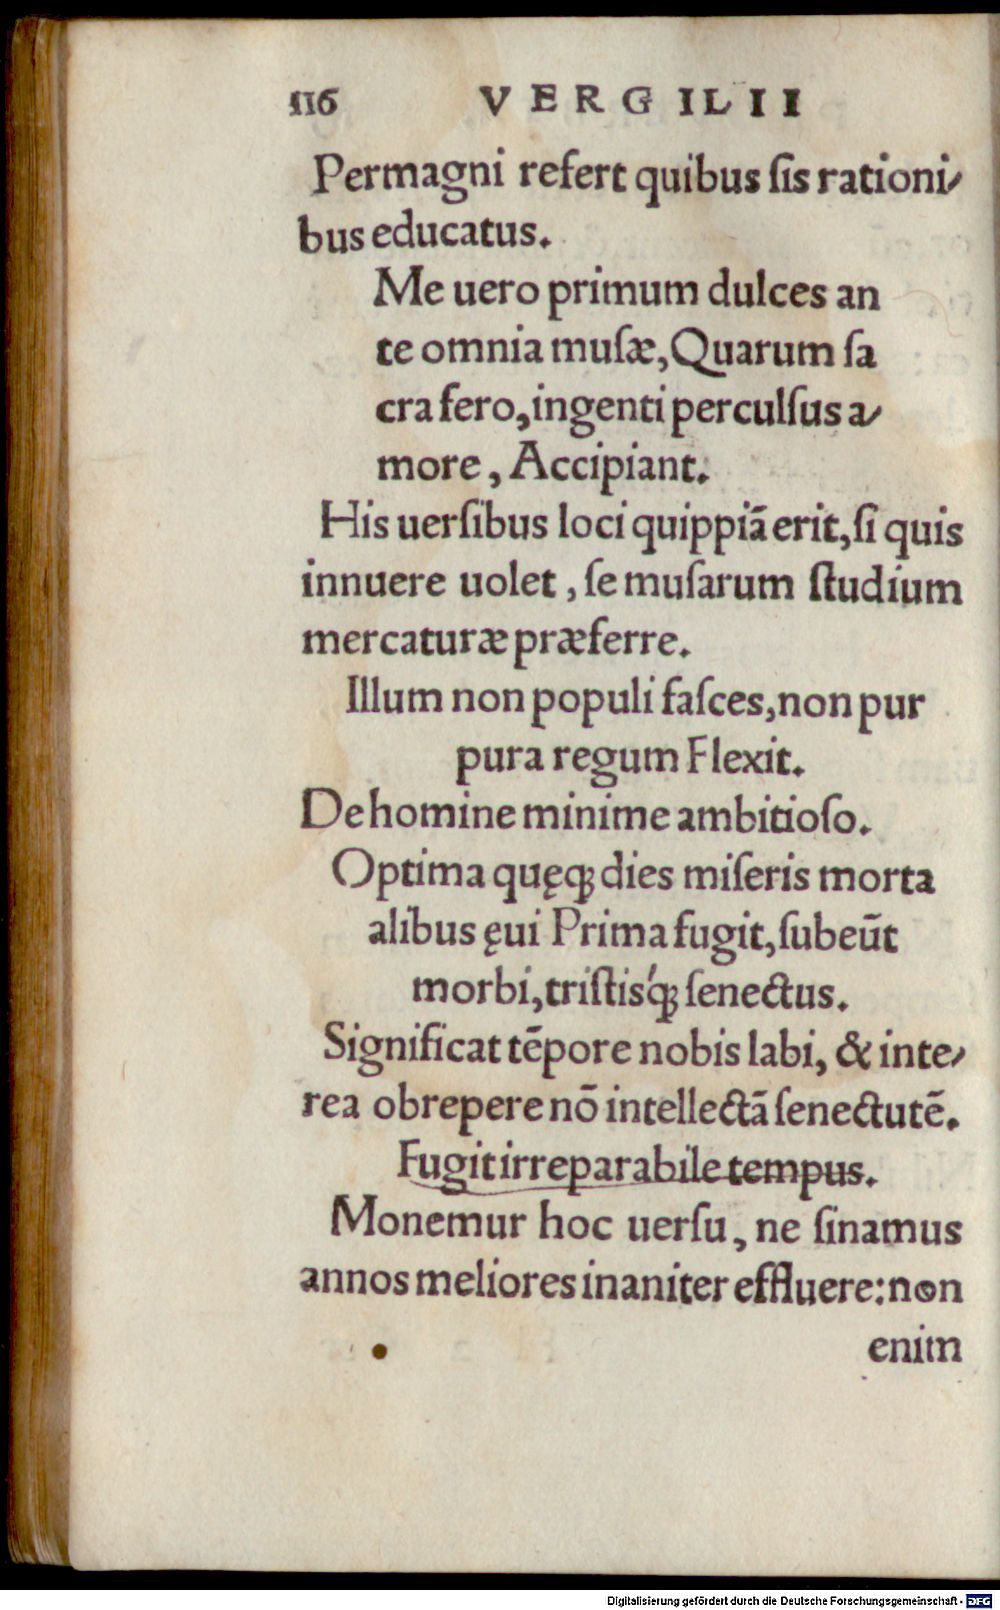 116 VERGILII
Permagni refert quibus ſis rationi⸗
bus educatus.
Me uero primum dulces an
te omnia muſæ, Quarum ſa
cra fero, ingenti perculſus a⸗
more, Accipiant.
His uerſibus loci quippiā erit, ſi quis
innuere uolet, ſe muſarum ſtudium
mercaturæ præferre.
Illum non populi faſces, non pur
pura regum Flexit.
De homine minime ambitioſo.
Optima quęqꝫ dies miſeris morta
alibus ęui Prima fugit, ſubeūt
morbi, triſtisq́ꝫ ſenectus.
Significat tēpore nobis labi, & inte⸗
rea obrepere nō intellectā ſenectutē.
Fugit irreparabile tempus.
Monemur hoc uerſu, ne ſinamus
annos meliores inaniter effluere: non
enim
Digitalisierung gefördert durch die Deutsche Forschungsgemeinschaft - DFG